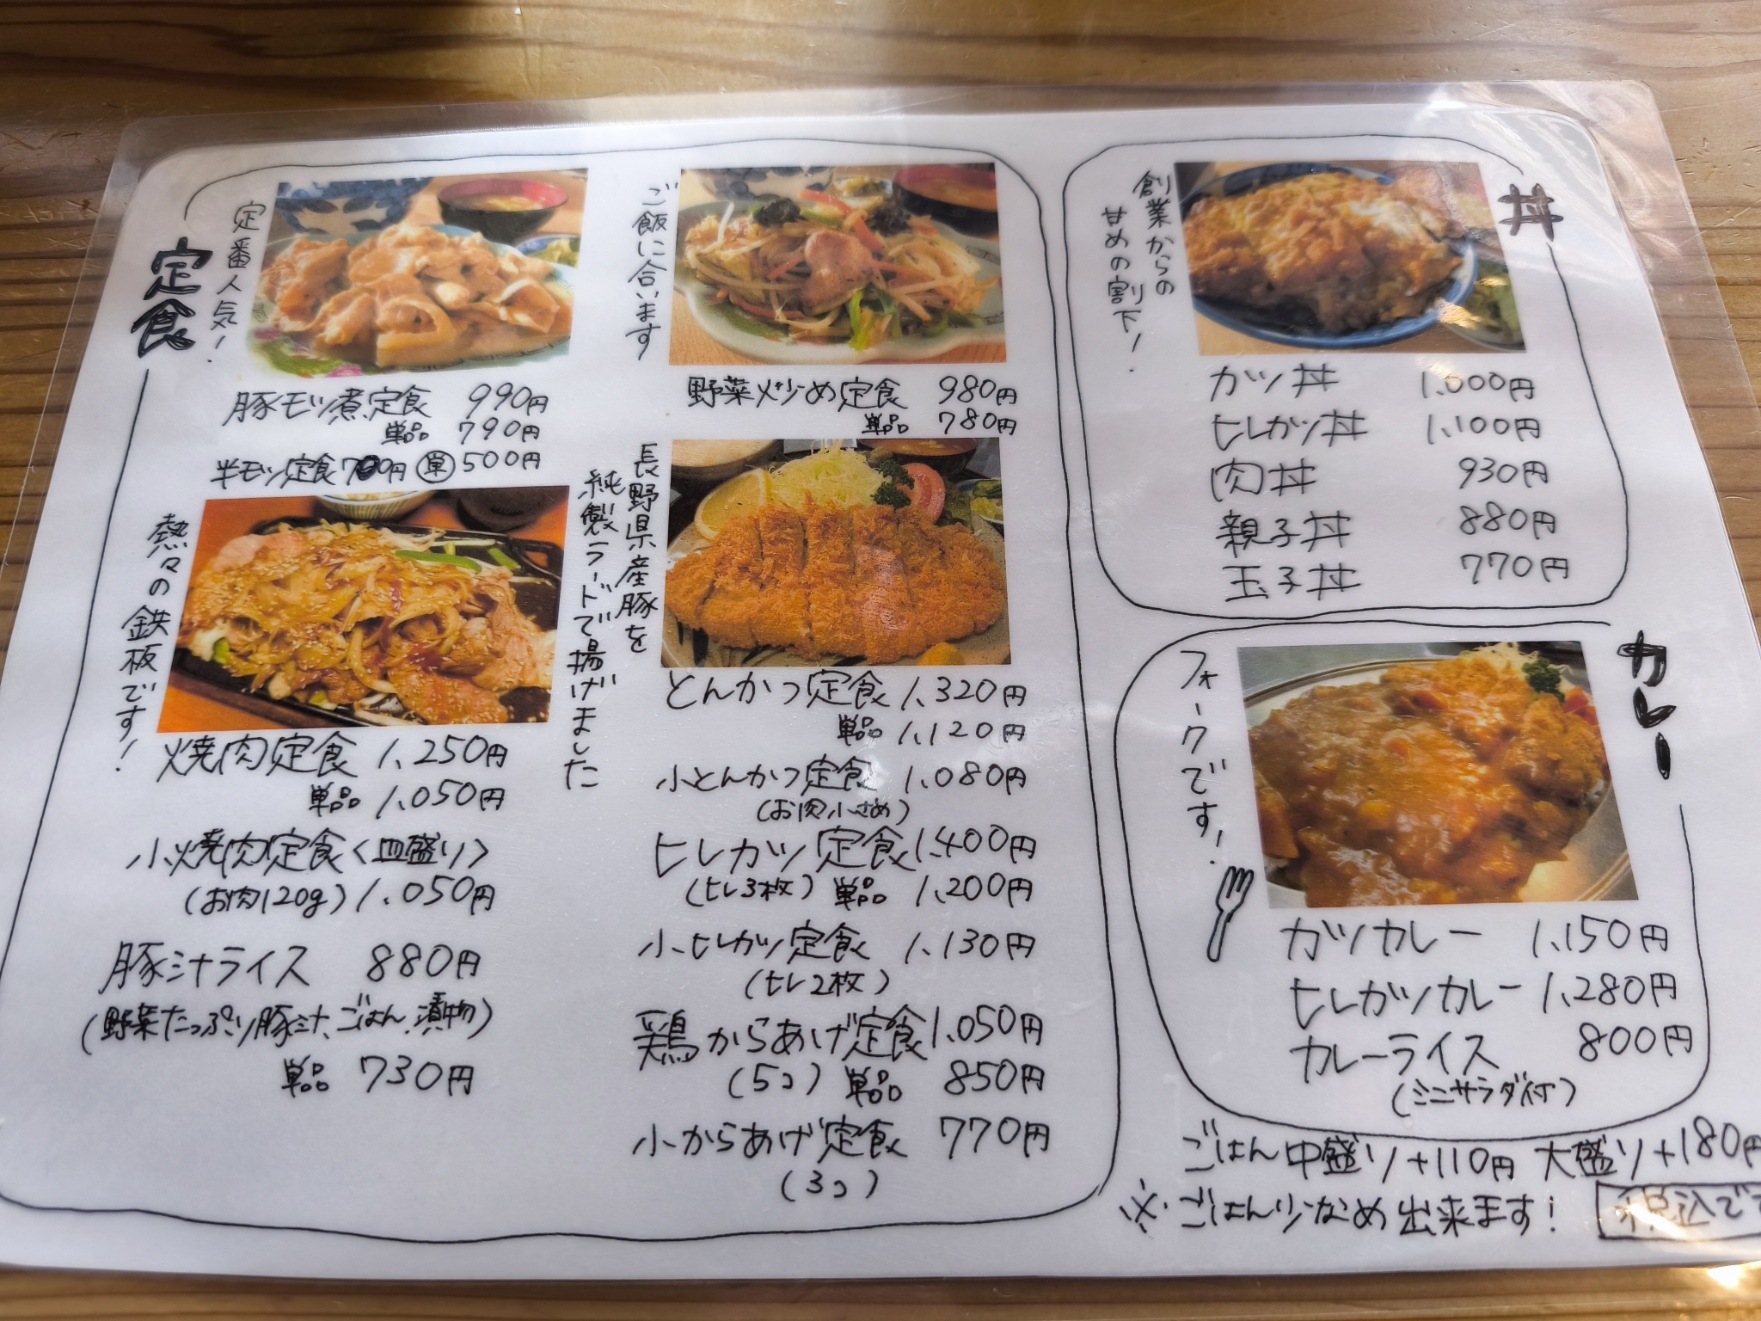 定食
定番人気!
豚モツ煮定食 990円
単品 790円
半モツ定食 700円 単 500円
熱々の鉄板です!
焼肉定食 1,250円
単品 1,050円
小焼肉定食<皿盛り>
(お肉120g) 1,050円
豚汁ライス 880円
(野菜たっぷり豚汁、ごはん、漬物)
単品 730円
ご飯に合います
野菜炒め定食 980円
単品 780円
長野県産豚を
純製ラードで揚げました
とんかつ定食 1,320円
単品 1,120円
小とんかつ定食 1,080円
(お肉小さめ)
ヒレカツ定食 1,400円
(ヒレ3枚) 単品 1,200円
小ヒレカツ定食 1,130円
(ヒレ2枚)
鶏からあげ定食 1,050円
(5コ) 単品 850円
小からあげ定食 770円
(3コ)
丼
創業からの
甘めの割下!
カツ丼 1,000円
ヒレカツ丼 1,100円
肉丼 930円
親子丼 880円
玉子丼 770円
カレー
フォークです!
カツカレー 1,150円
ヒレカツカレー 1,280円
カレーライス 800円
(ミニサラダ付)
ごはん中盛り+110円 大盛り+180円
※ごはん少なめ出来ます!
税込で